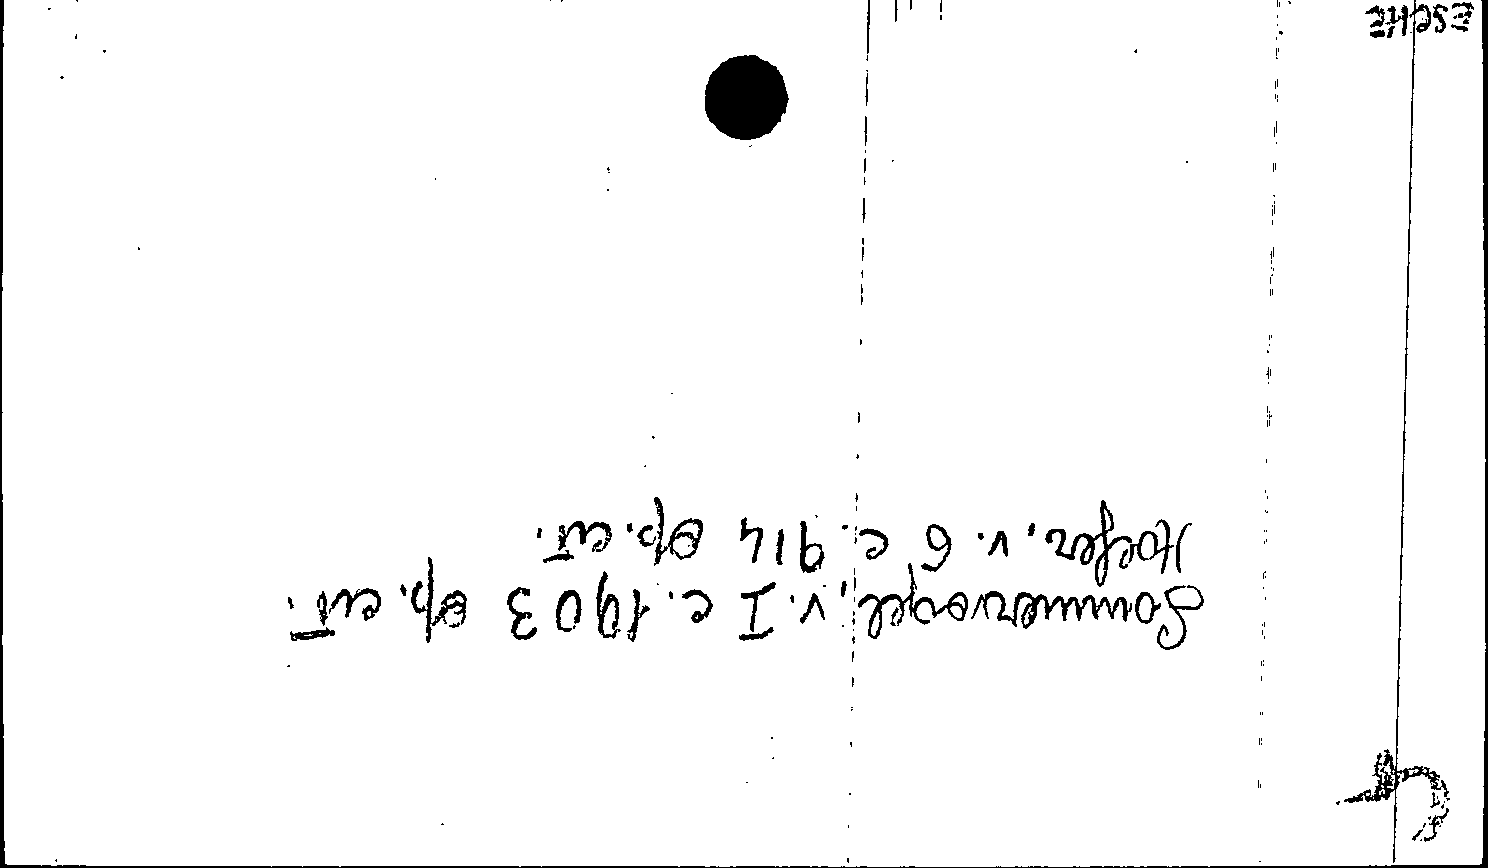 Sommervogel, v. I c. 1903 op. cit.
Hoefer, v. 6 c. 914 op. cit.